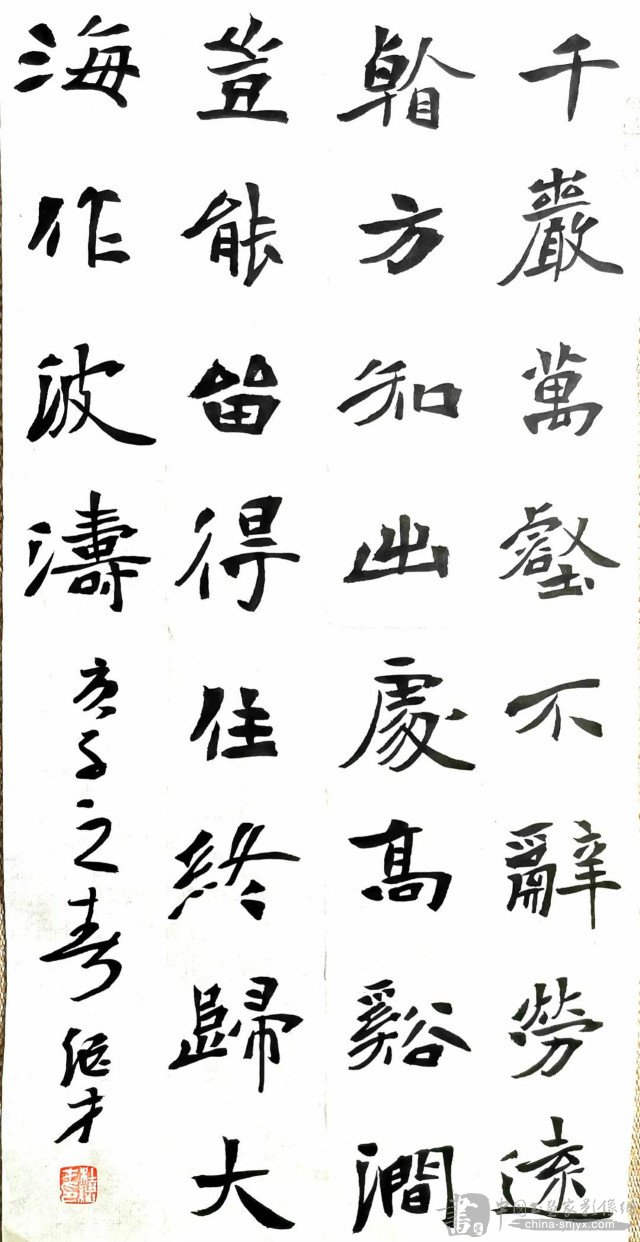 千嚴萬壑不辭勞遠
看方知出處高谿澗
豈能留得住終歸大
海作波濤
庚子之春
中国书画家影像网
china-shjyx.com